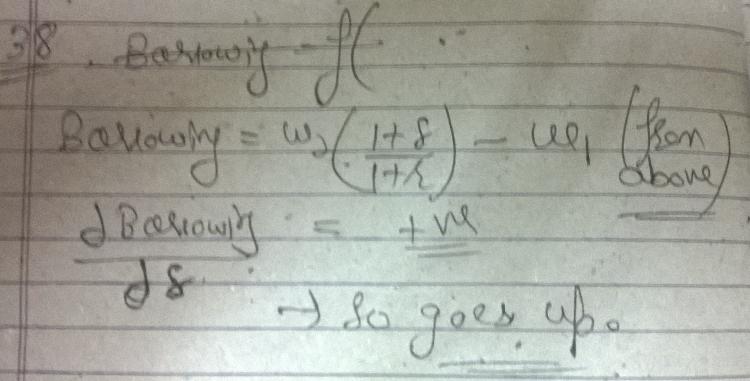 38. Borrowing = f(
Borrowing = w₂ ( (1+δ)/(1+r) ) − w₁ (from above)
dBorrowing/dδ = +ve
→ So goes up.